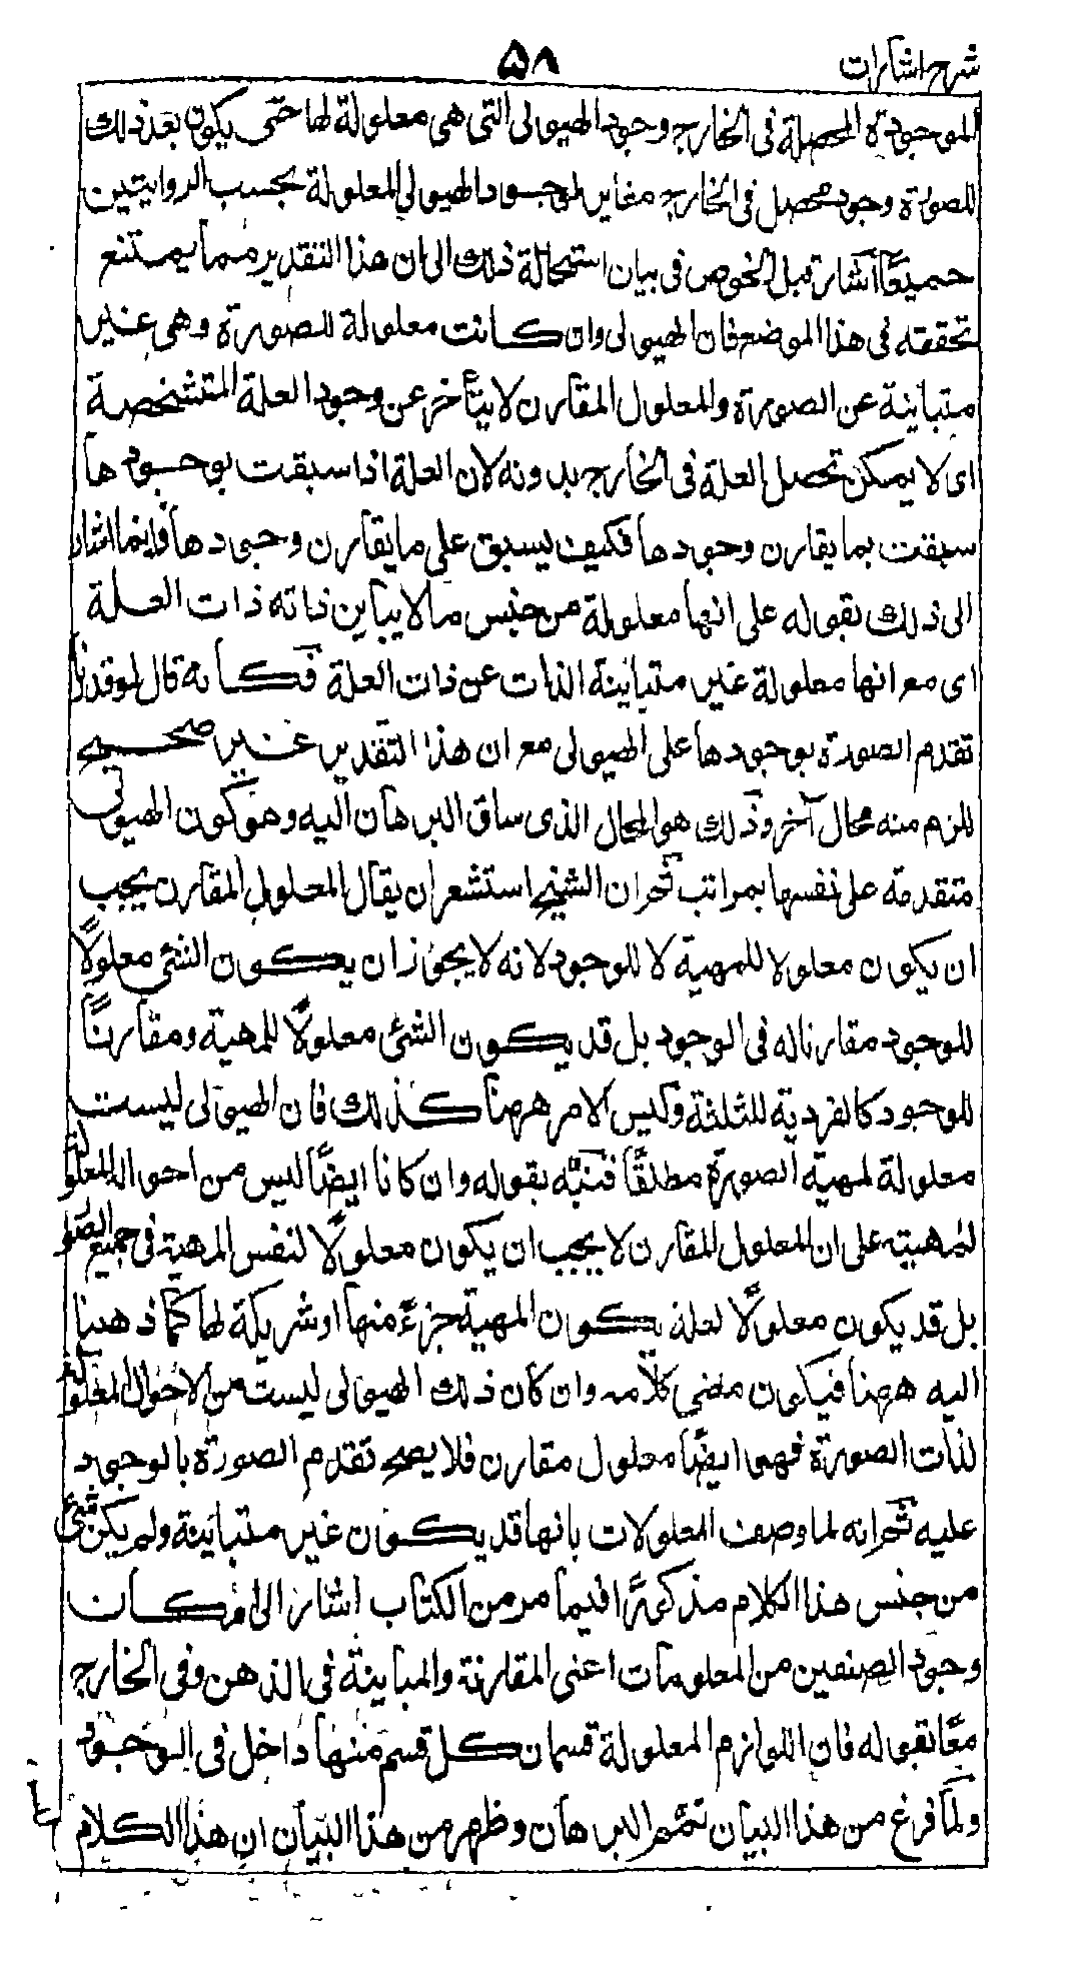 شرح اشارات
٥٨
الموجودة المحصلة فى الخارج وجود الهيولى التى هى معلولة لها حتى يكون بعد ذلك
للصورة وجود محصل فى الخارج مغاير لوجود الهيولى المعلولة بحسب الروايتين
جميعًا اشار قبل الخوض فى بيان استحالة ذلك الى ان هذا التقدير مما يمتنع
تحققه فى هذا الموضع فان الهيولى وان كانت معلولة للصورة وهى غير
متباينة عن الصورة والمعلول المقارن لا يتأخر عن وجود العلة المتشخصة
اى لا يمكن تحصل العلة فى الخارج بدونه لان العلة اذا سبقت بوجودها
سبقت بما يقارن وجودها فكيف يسبق على ما يقارن وجودها وانما اشار
الى ذلك بقوله على انها معلولة من جنس ما لا يباين ذاته ذات العلة
اى مع انها معلولة غير متباينة الذات عن ذات العلة فكأنه قال لو قدرنا
تقدم الصورة بوجودها على الهيولى مع ان هذا التقدير غير صحيح
للزم منه محال آخر وذلك هو المحال الذى ساق البرهان اليه وهو كون الهيولى
متقدمة على نفسها بمراتب ثم ان الشيخ استشعر ان يقال المعلول المقارن يجب
ان يكون معلولا للمهية لا للوجود لانه لا يجوز ان يكون الشئ معلولًا
للوجود مقارنا له فى الوجود بل قد يكون الشئ معلولًا للمهية ومقارنًا
للوجود كالفردية للثلثة وليس الامر ههنا كذلك فان الهيولى ليست
معلولة لمهية الصورة مطلقًا فنبّه بقوله وان كانا ايضًا ليس من احوال المعلولة
لمهيته على ان المعلول المقارن لا يجب ان يكون معلولًا لنفس المهية فى جميع الصور
بل قد يكون معلولًا لعلة يكون المهية جزءً منها او شريكة لها كما ذهبنا
اليه ههنا فيكون معنى كلامه وان كان ذلك الهيولى ليست من الاحوال المعلولة
لذات الصورة فهى ايضًا معلول مقارن فلا يصح تقدم الصورة بالوجود
عليه ثم انه لما وصف المعلولات بانها قد يكون غير متباينة ولم يكن شئ
من جنس هذا الكلام مذكورًا فيما مر من الكتاب اشار الى امكان
وجود الصنفين من المعلومات اعنى المقارنة والمباينة فى الذهن وفى الخارج
معًا بقوله فان اللوازم المعلولة قسمان كل قسم منها داخل فى الوجود
ولما فرغ من هذا البيان تمم البرهان وظهر من هذا البيان ان هذا الكلام